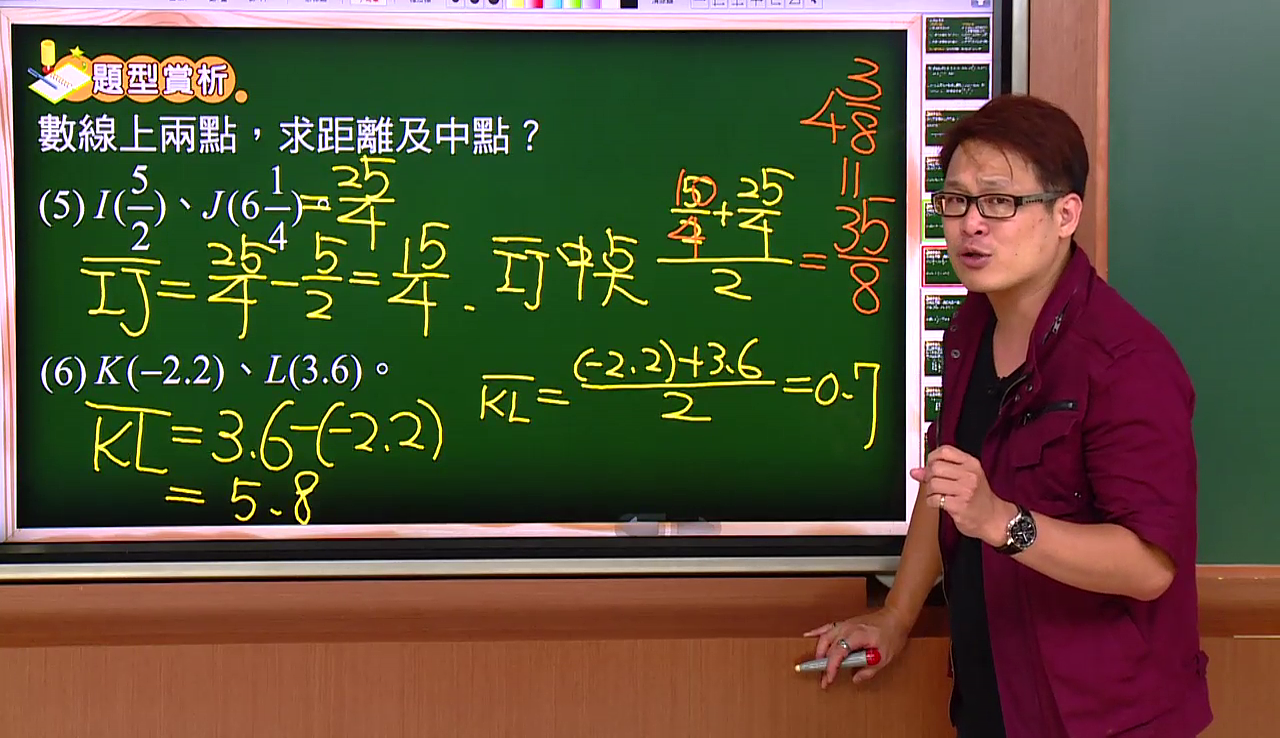 題型賞析
數線上兩點，求距離及中點？
(5) I(5/2)、J(6 1/4)。= 25/4
IJ = 25/4 - 5/2 = 15/4 .
IJ 中点 (10/4 + 25/4)/2 = 35/8
4 3/8
(6) K(−2.2)、L(3.6)。
KL = 3.6-(-2.2)
= 5.8
KL = ((-2.2)+3.6)/2 = 0.7